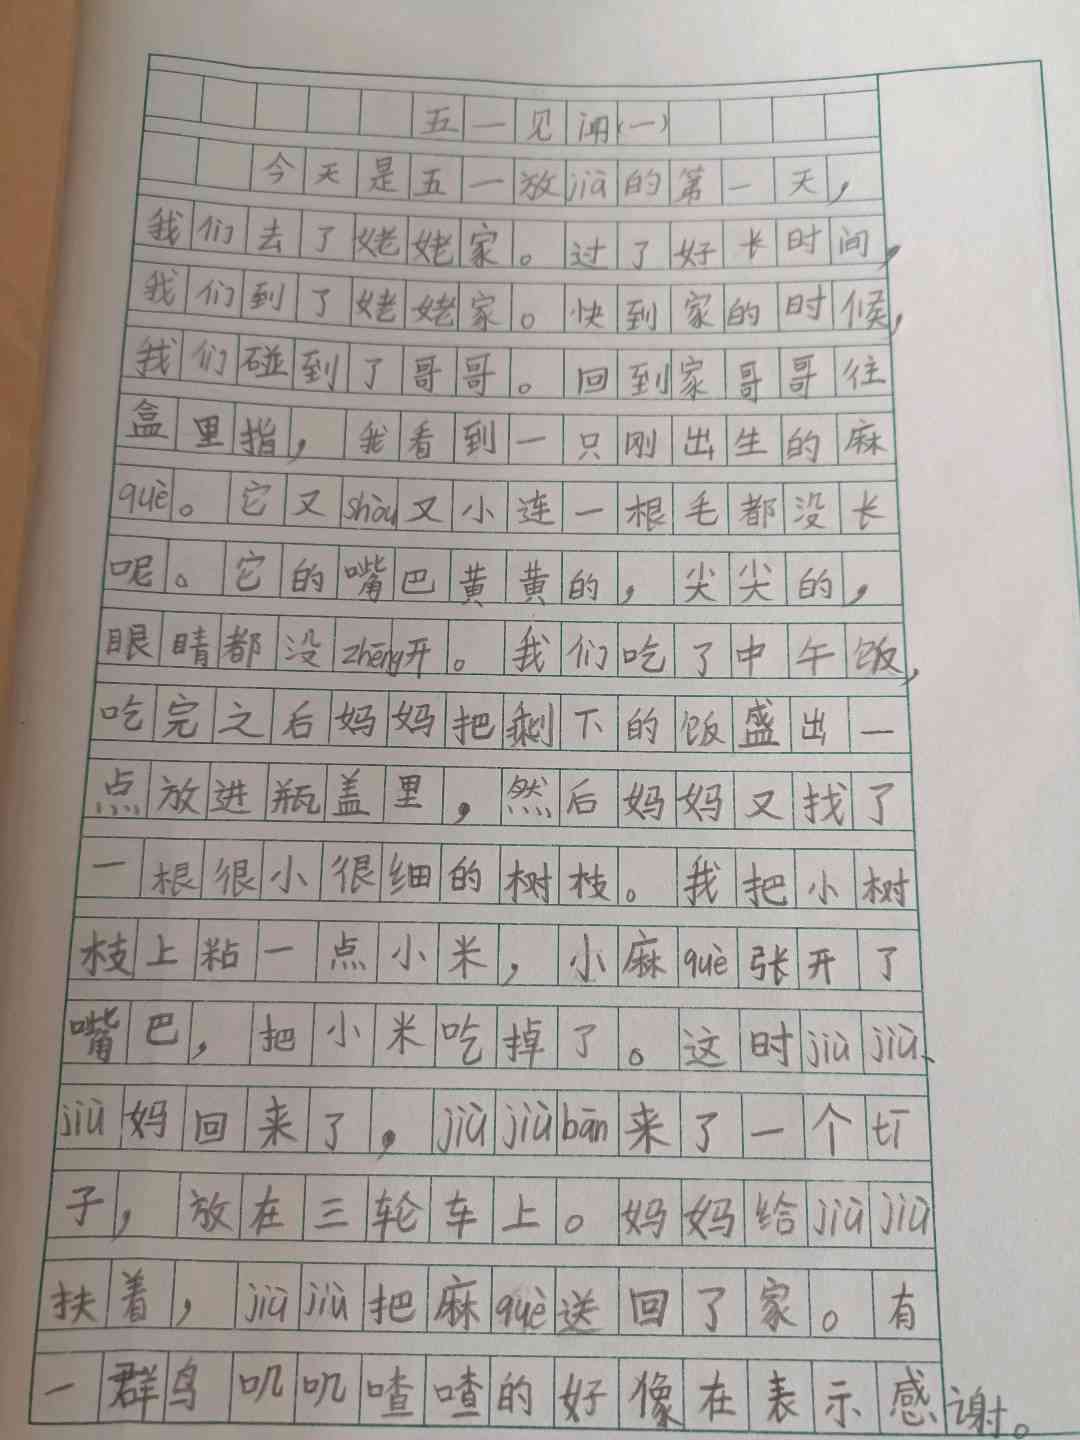 五一见闻(一)
今天是五一放jià的第一天，
我们去了姥姥家。过了好长时间，
我们到了姥姥家。快到家的时候，
我们碰到了哥哥。回到家哥哥往
盒里指，我看到一只刚出生的麻
què。它又shòu又小连一根毛都没长
呢。它的嘴巴黄黄的，尖尖的，
眼睛都没zhēng开。我们吃了中午饭，
吃完之后妈妈把剩下的饭盛出一
点放进瓶盖里，然后妈妈又找了
一根很小很细的树枝。我把小树
枝上粘一点小米，小麻què张开了
嘴巴，把小米吃掉了。这时jiù jiù、
jiù妈回来了，jiù jiù bān来了一个tī
子，放在三轮车上。妈妈给jiù jiù
扶着，jiù jiù把麻què送回了家。有
一群鸟叽叽喳喳的好像在表示感谢。